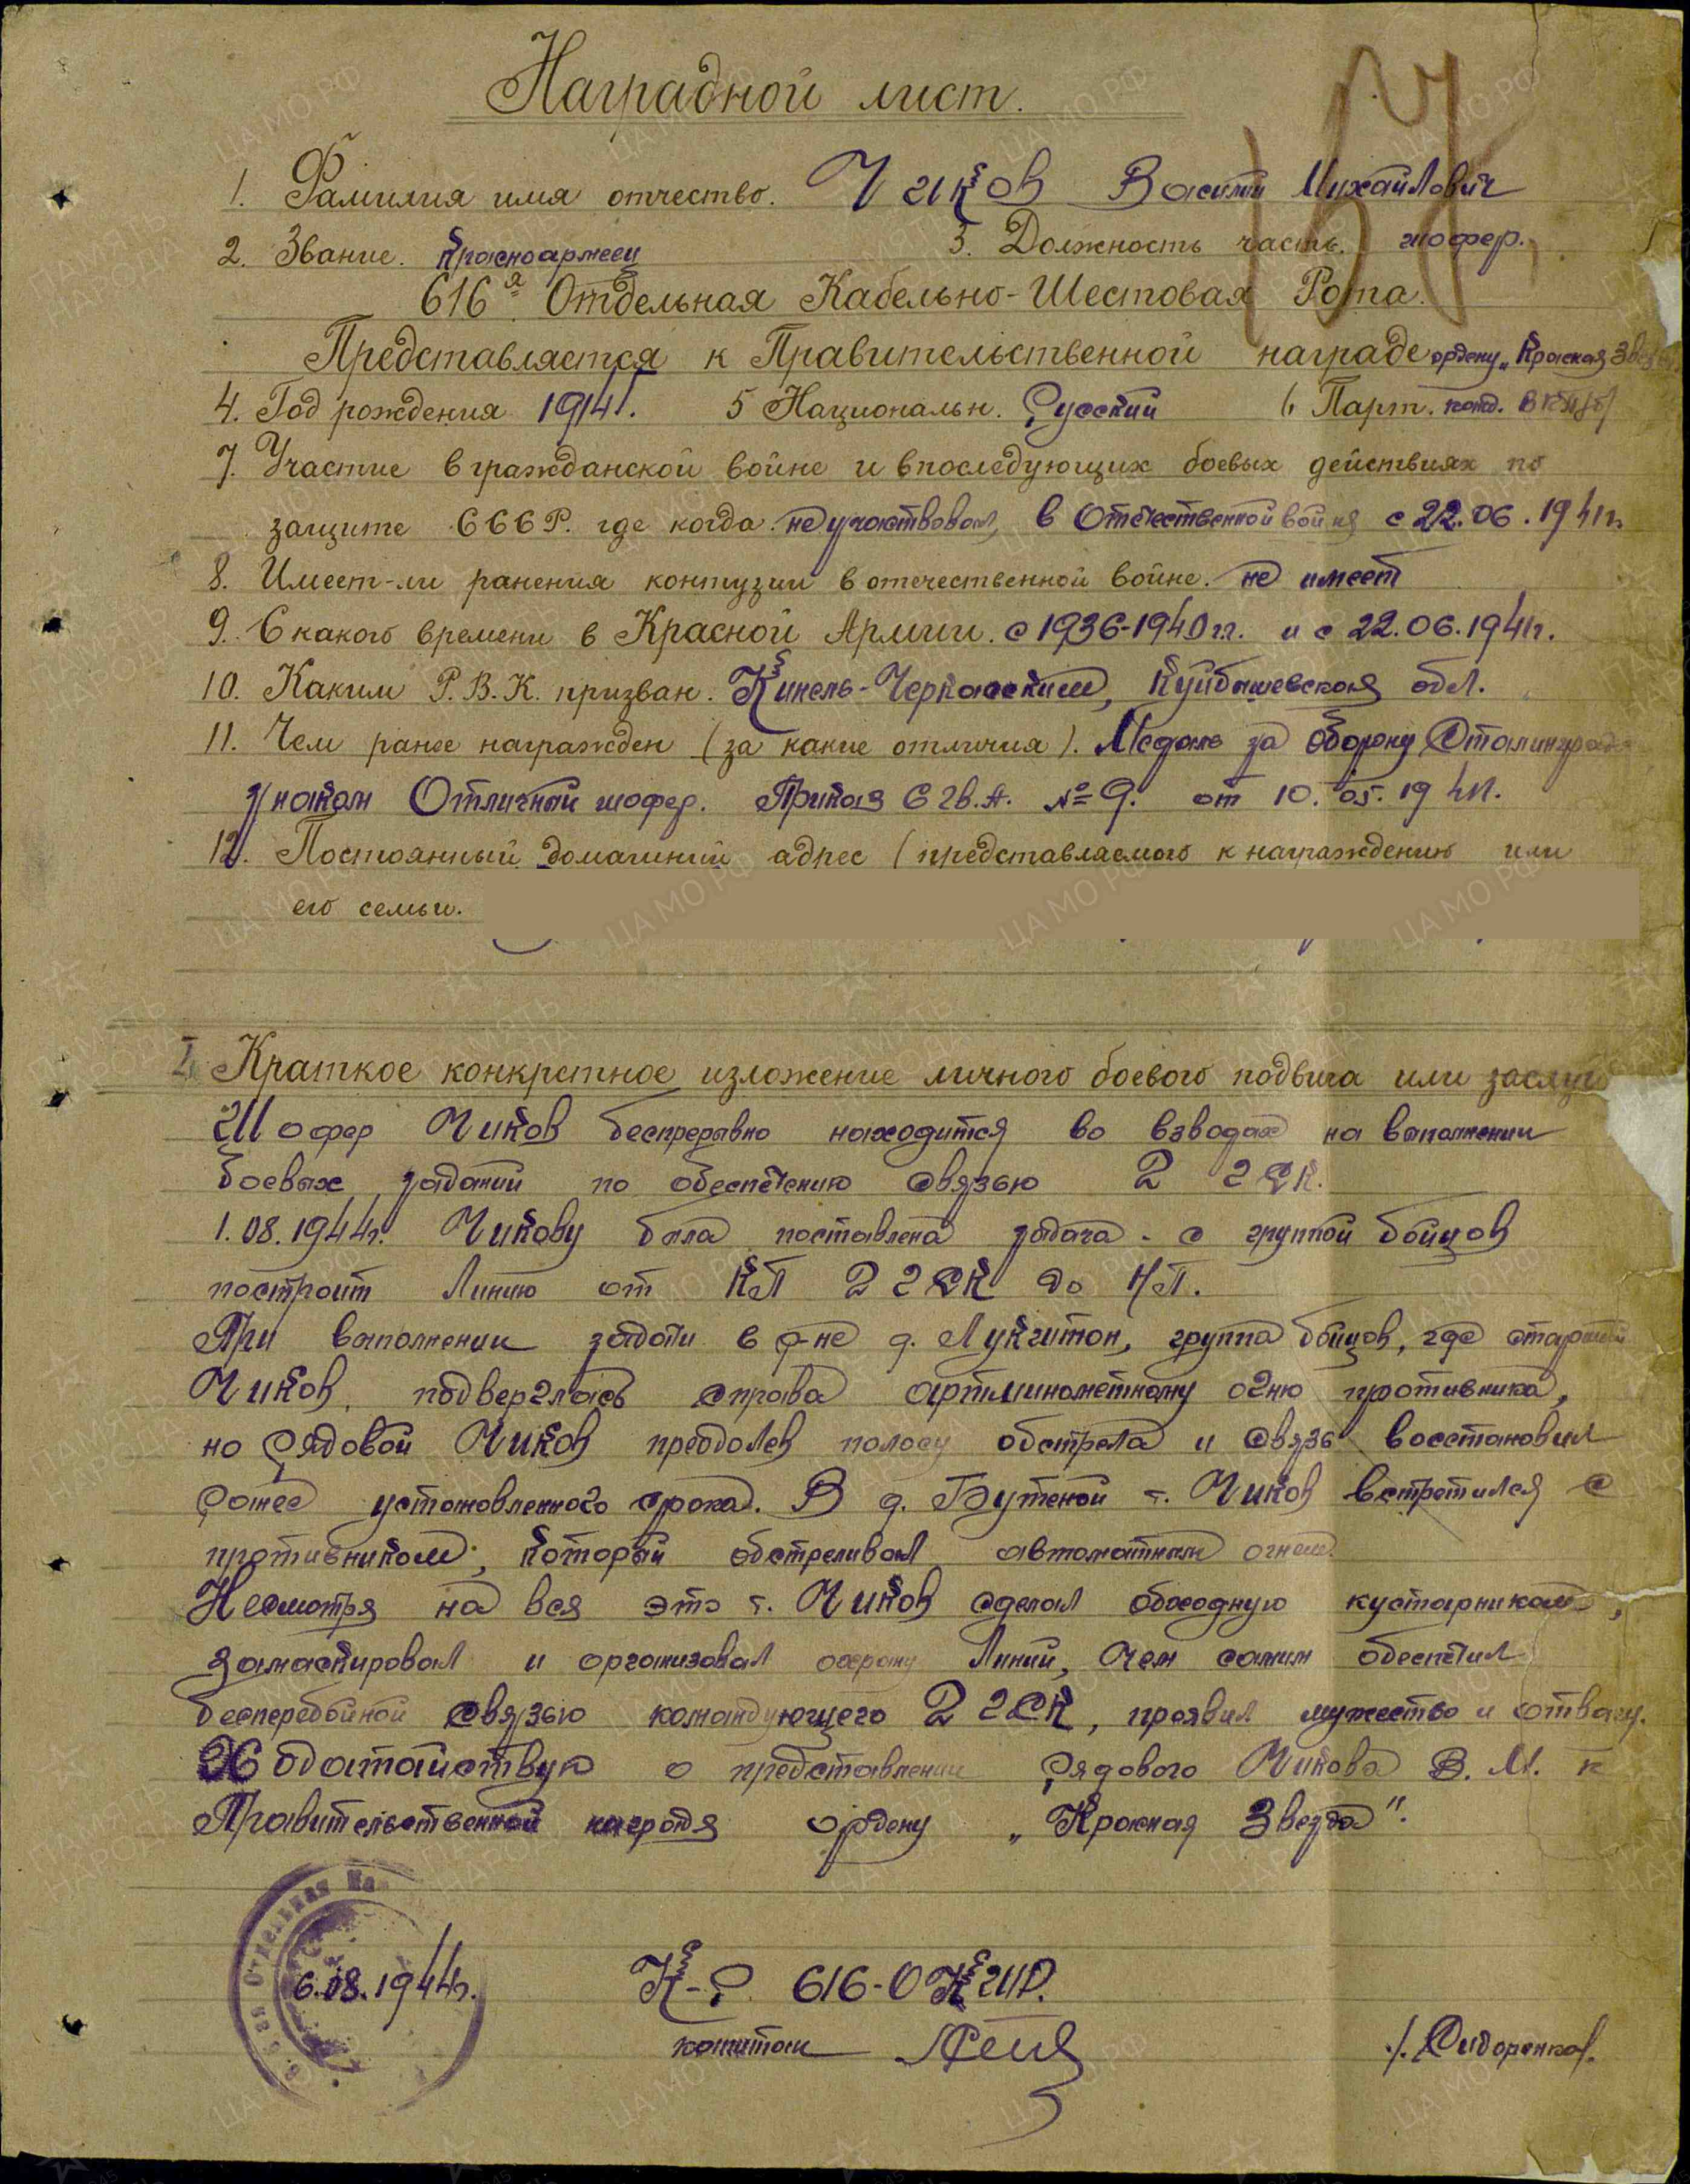 Наградной лист.
1. Фамилия имя отчество. Чиков Василий Михайлович
2. Звание. Красноармеец 3. Должность часть. шофер.
616я Отдельная Кабельно-Шестовая Рота.
Представляется к Правительственной награде ордену „Красная Звезда
4. Год рождения 1914г. 5 Национальн. Русский 6. Парт. канд. ВКП(б)
7. Участие в гражданской войне и впоследующих боевых действиях по
защите СССР. где когда. не участвовал, в Отечественной войне с 22.06.1941г.
8. Имеет-ли ранения контузии в отечественной войне. не имеет
9. С какого времени в Красной Армии. с 1936-1940 гг. и с 22.06.1941г.
10. Каким Р.В.К. призван. Кинель-Черкасским, Куйбышевская обл.
11. Чем ранее награжден (за какие отличия). Медаль за оборону Сталинграда
Знаком Отличный шофер. Приказ 6 гв.А. №9. от 10.05.1944г.
12. Постоянный домашний адрес (представляемого к награждению или
его семьи.
I. Краткое конкретное изложение личного боевого подвига или заслуг
Шофер Чиков беспрерывно находится во взводах на выполнении
боевых заданий по обеспечению связью 2 гСК.
1.08.1944г. Чикову была поставлена задача - с группой бойцов
построит линию от КП 2 гСК до НП.
При выполнении задачи в р-не д. Лукштон, группа бойцов, где старший
Чиков, подверглась справа артминометному огню противника,
но рядовой Чиков преодолев полосу обстрела и связь восстановил
ранее установленного срока. В д. Бутеной т. Чиков встретился с
противником, который обстреливал автоматным огнем.
Несмотря на вся это т. Чиков сделал обходную кустарником,
замаскировал и организовал охрану линий, чем самим обеспечил
бесперебойной связью командующего 2 гСК, проявил мужество и отвагу.
Ходатайствую о представлении рядового Чикова В.М. к
Правительственной награде ордену „Красная Звезда".
Отдельная Ка
6.08.1944г. К-Р 616-ОКШР.
капитан /.Сидоренко/.